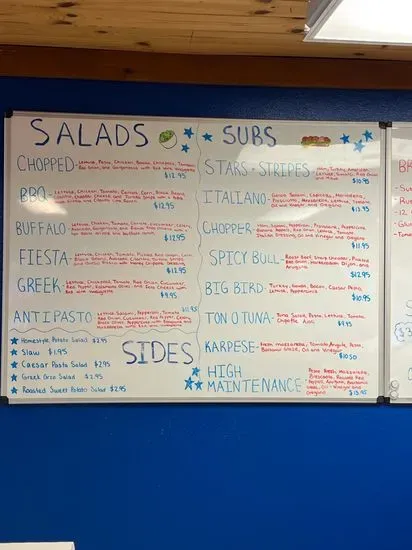 SALADS
CHOPPED - Lettuce, Pasta, Chicken, Bacon, Chickpeas, Tomatoes,
Red Onion, and Gorgonzola with Red Wine Vinaigrette
$12.95
BBQ - Lettuce, Chicken, Tomato, Carrots, Corn, Black Beans,
$12.95
BUFFALO - Lettuce, Chicken, Tomato, Carrots, Cucumber, Celery,
$12.95
FIESTA - Lettuce, Chicken, Tomato, Pickled Red Onion, Corn,
Black Beans, Avocado, Cilantro, Tortilla Strips,
$12.95
GREEK - Lettuce, Chickpeas, Tomato, Red Onion, Cucumber,
Red Pepper, Kalamata Olives, and Feta Cheese with
Red Wine Vinaigrette
$9.95
ANTIPASTO - Lettuce, Salami, Pepperoni, Tomato,
Red Onion, Cucumber, Red Pepper,
Black Olives, Pepperoncini, Provolone and
Mozzarella with Red Wine Vinaigrette
$11.95
SIDES
Homestyle Potato Salad $2.95
Slaw $1.95
Caesar Pasta Salad $2.95
Greek Orzo Salad $2.95
Roasted Sweet Potato Salad $2.95
SUBS
STARS + STRIPES - Ham, Turkey, American,
Lettuce, Tomato, Red Onion
and Mayo
$10.95
ITALIANO - Genoa Salami, Capicola, Mortadella,
Prosciutto, Mozzarella, Lettuce, Tomato,
Oil and Vinegar and Oregano
$13.95
CHOPPER - Ham, Salami, Pepperoni, Provolone, Pepperoncini,
Banana Peppers, Red Onion, Lettuce, Tomato,
Italian Dressing, Oil and Vinegar and Oregano
$11.95
SPICY BULL - Roast Beef, Sharp Cheddar, Pickled
Red Onion, Horseradish Dijon, and
Arugula
$12.95
BIG BIRD - Turkey, Gouda, Bacon, Caesar Mayo,
Lettuce, Pepperoncini
$10.95
TON O TUNA - Tuna Salad, Pasta, Lettuce, Tomato,
Chipotle Aioli
$9.95
KARPESE - Fresh Mozzarella, Tomato, Arugula, Pesto,
Balsamic Glaze, Oil and Vinegar
$10.50
HIGH
MAINTENANCE - Pesto, Fresh Mozzarella,
Prosciutto, Roasted Red
Pepper, Arugula, Balsamic
Glaze, Oil + Vinegar and
Oregano
$13.95